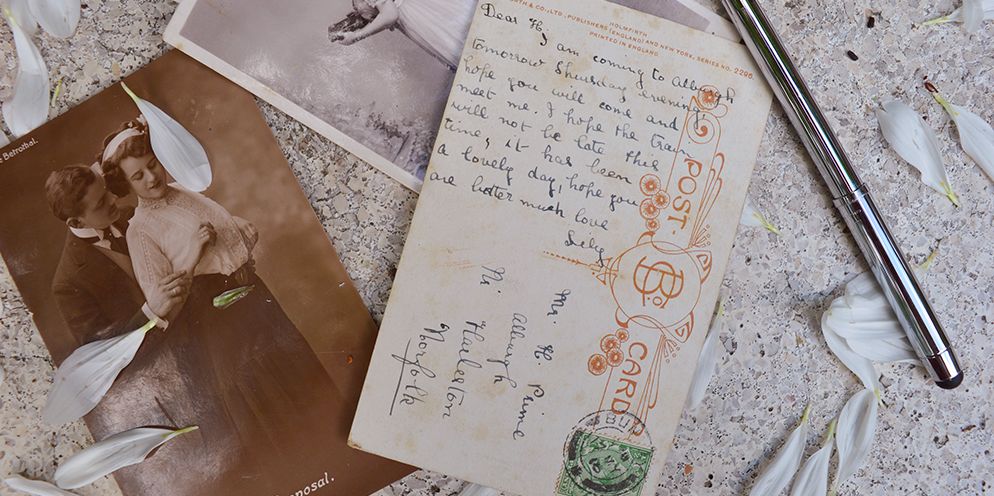 Betrothal.
posal.
RTH & CO., LTD., PUBLISHERS HOLMFIRTH
(ENGLAND) AND NEW YORK, SERIES NO. 2295.
PRINTED IN ENGLAND
Dear H,
I am coming to Alburgh
tomorrow Thursday evening,
hope you will come and
meet me. I hope the train
will not be late this
time, it has been
a lovely day, hope you
are better much love
POST
B
Co
CARD
Mr. H. Prime
Alburgh
Nr. Harleston
Norfolk